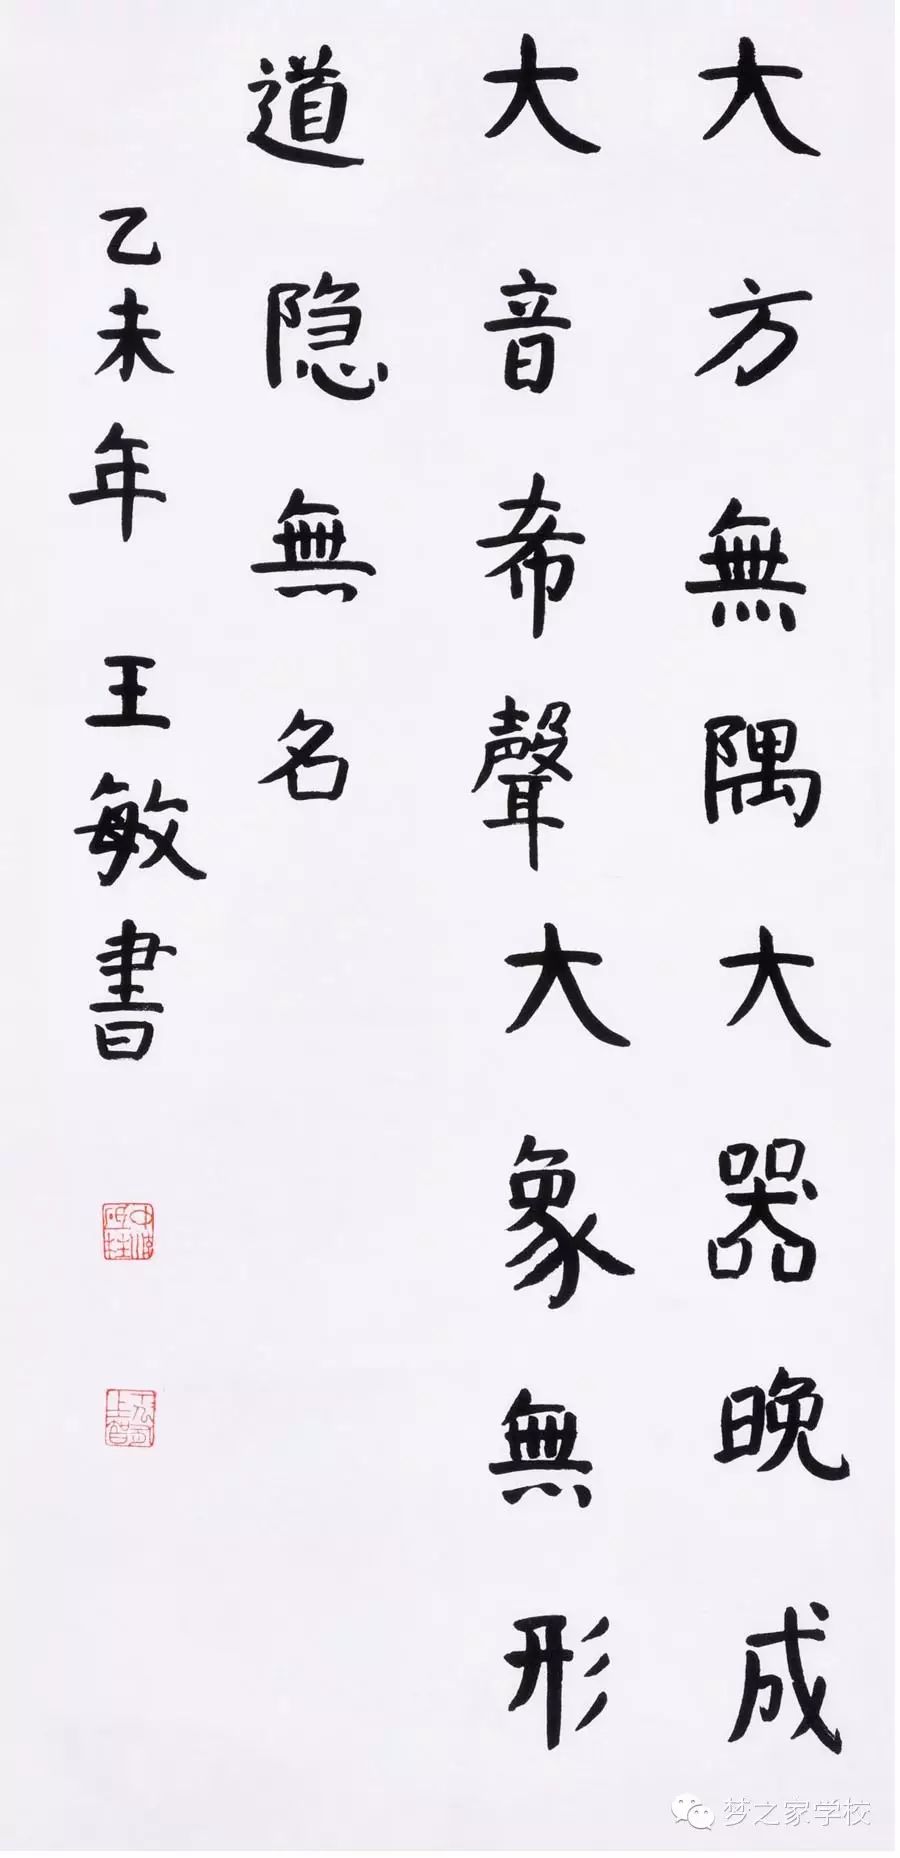 大方無隅大器晚成
大音希聲大象無形
道隐無名
乙未年 王敏書
梦之家学校